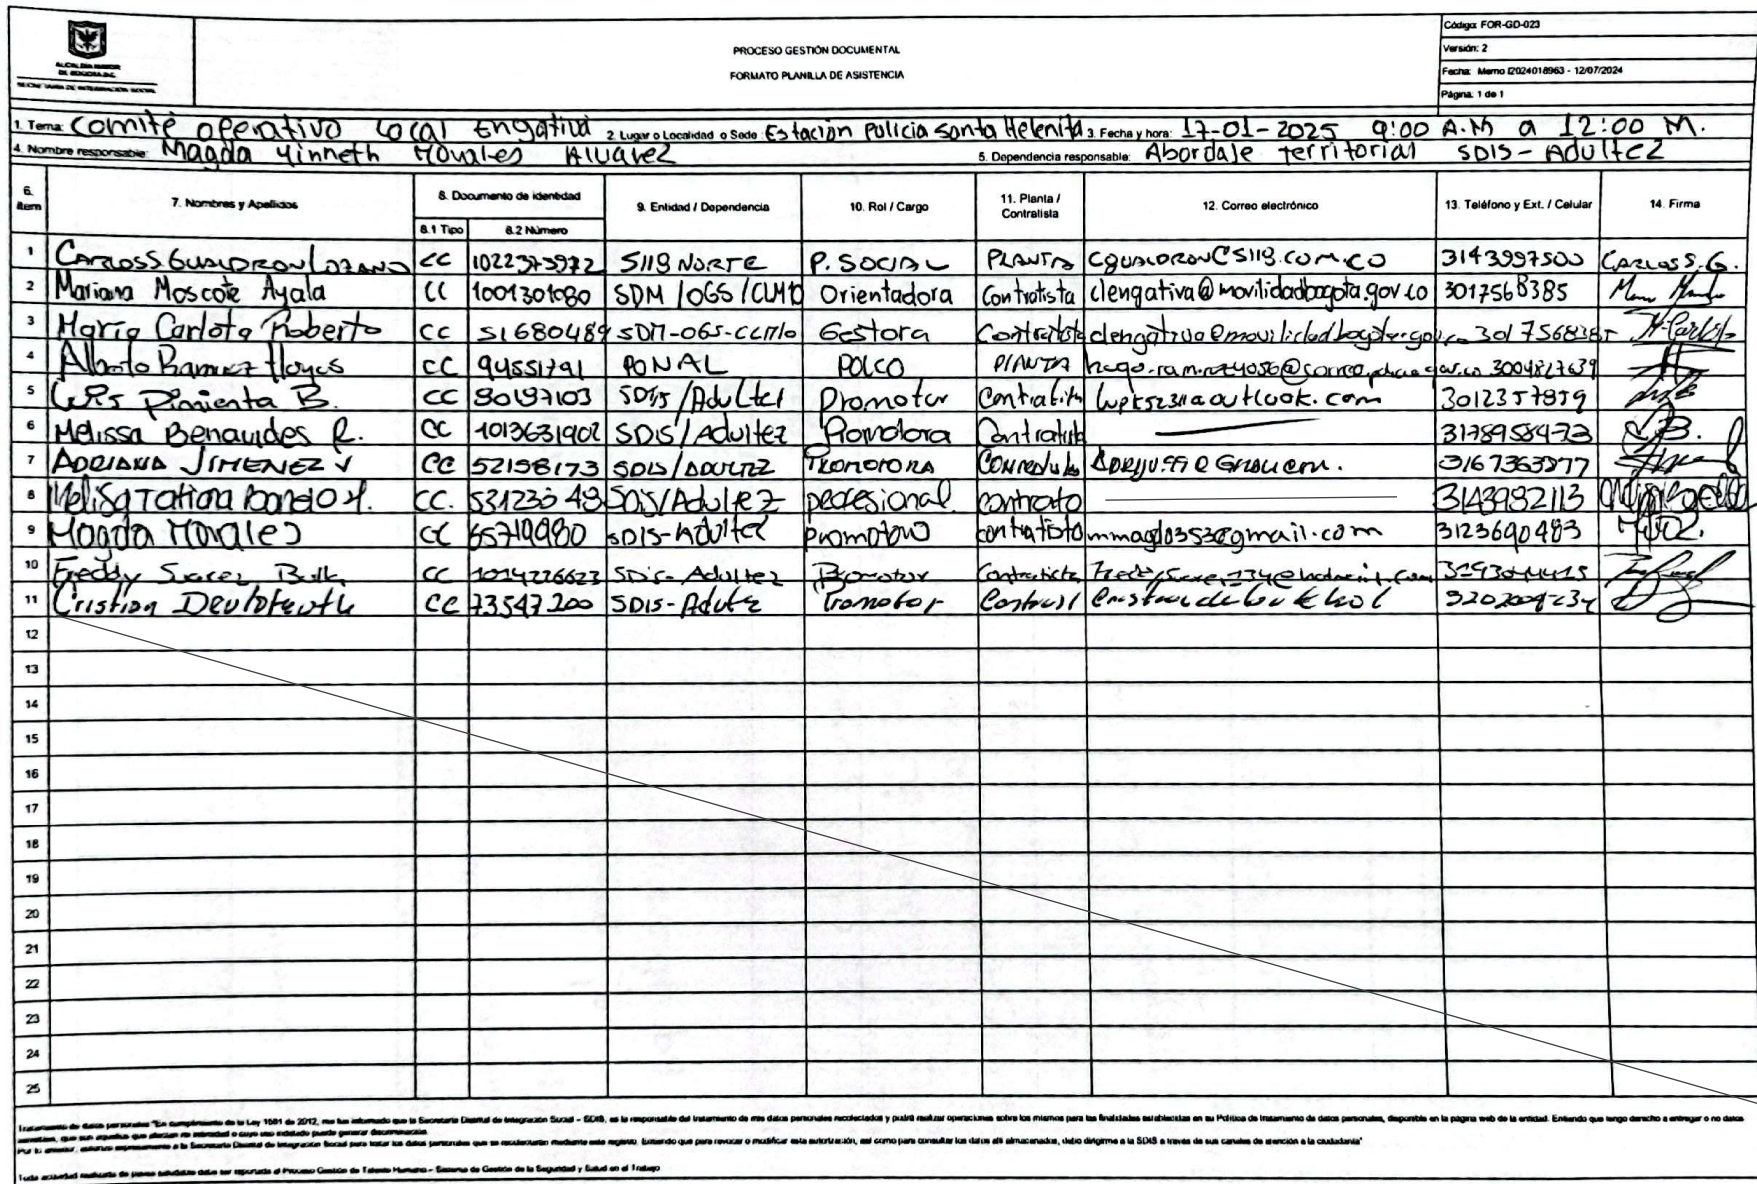 ALCALDÍA MAYOR
DE BOGOTÁ D.C.
SECRETARÍA DE INTEGRACIÓN SOCIAL
PROCESO GESTIÓN DOCUMENTAL
FORMATO PLANILLA DE ASISTENCIA
Código: FOR-GD-023
Versión: 2
Fecha: Memo I2024018963 - 12/07/2024
Página: 1 de 1
1. Tema: Comité operativo Local Engativa 2. Lugar o Localidad o Sede: Estación Policia Santa Helenita 3. Fecha y hora: 17-01-2025 9:00 A.M a 12:00 M.
4. Nombre responsable: Magda Yinneth Morales Alvarez 5. Dependencia responsable: Abordaje territorial SDIS-Adultez
6. Item 7. Nombres y Apellidos 8. Documento de identidad 9. Entidad / Dependencia 10. Rol / Cargo 11. Planta / Contratista 12. Correo electrónico 13. Teléfono y Ext. / Celular 14. Firma
8.1 Tipo 8.2 Número
1 CARLOS S. GUALDRON LOZANO CC 1022373972 S119 NORTE P. SOCIAL PLANTA 3143997500 CARLOS S. G.
2 Mariana Moscote Ayala CC 1001301080 SDM /OGS /CLM10 Orientadora Contratista clengativa@movilidadbogota.gov.co 3017568385
3 María Carlota Roberto CC 51680489 SDM-OGS-CLM10 Gestora Contratista clengativa@movilidadbogota.gov.co 3017568385
4 Alberto Ramirez Hoyos CC 94551791 PONAL POLCO PLANTA 3004827639
5 Luis Pimienta B. CC 80197103 SDIS/Adultez Promotor Contratista 3012357859
6 Melissa Benavides R. CC 1013631902 SDIS/Adultez Promotora Contratista 3178958473
7 ADRIANA JIMENEZ V CC 52158173 SDIS/ADULTEZ PROMOTORA 3167363977
8 Melisa Tatiana CC. 53123049 SDIS/Adultez profesional. contrato 3143982113
9 Magda Morales CC 65719980 SDIS-Adultez promotora contratista mmagda353@gmail.com 3123690483
10 Freddy Suarez CC 1014226623 SDIS-Adultez Promotor Contratista
11 Cristian CC 73547200 SDIS-Adultez Promotor
12
13
14
15
16
17
18
19
20
21
22
23
24
25
Tratamiento de datos personales "En cumplimiento de la Ley 1581 de 2012, me han informado que la Secretaría Distrital de Integración Social – SDIS, es la responsable del tratamiento de mis datos personales recolectados y podrá realizar operaciones sobre los mismos para las finalidades establecidas en su Política de tratamiento de datos personales, disponible en la página web de la entidad. Entiendo que tengo derecho a entregar o no datos
sensibles, que son aquellos que afectan mi intimidad o cuyo uso indebido puede generar discriminación.
Por lo anterior, autorizo expresamente a la Secretaría Distrital de Integración Social para tratar los datos personales que se recolectarán mediante este registro. Entiendo que para revocar o modificar esta autorización, así como para consultar los datos allí almacenados, debo dirigirme a la SDIS a través de sus canales de atención a la ciudadanía"
Toda actividad realizada de pausas saludables debe ser reportada al Proceso Gestión de Talento Humano – Sistema de Gestión de la Seguridad y Salud en el Trabajo